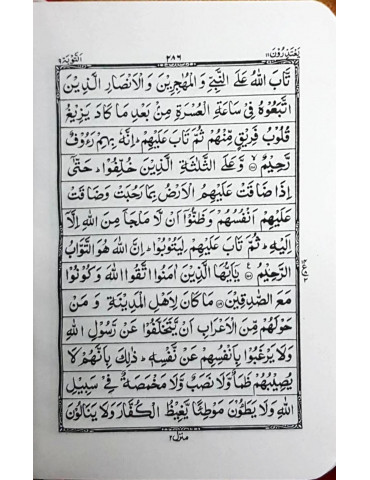 يعتذرون ١١ ٢٨٦ التوبة ٩
تَابَ اللّٰهُ عَلَى النَّبِيِّ وَالْمُهٰجِرِيْنَ وَالْاَنْصَارِ الَّذِيْنَ
اتَّبَعُوْهُ فِيْ سَاعَةِ الْعُسْرَةِ مِنْۢ بَعْدِ مَا كَادَ يَزِيْغُ
قُلُوْبُ فَرِيْقٍ مِّنْهُمْ ثُمَّ تَابَ عَلَيْهِمْ ؕ اِنَّهٗ بِهِمْ رَءُوْفٌ
رَّحِيْمٌ ۙ وَّعَلَى الثَّلٰثَةِ الَّذِيْنَ خُلِّفُوْا ؕ حَتّٰى
اِذَا ضَاقَتْ عَلَيْهِمُ الْاَرْضُ بِمَا رَحُبَتْ وَضَاقَتْ
عَلَيْهِمْ اَنْفُسُهُمْ وَظَنُّوْۤا اَنْ لَّا مَلْجَاَ مِنَ اللّٰهِ اِلَّاۤ
اِلَيْهِ ؕ ثُمَّ تَابَ عَلَيْهِمْ لِيَتُوْبُوْا ؕ اِنَّ اللّٰهَ هُوَ التَّوَّابُ
الرَّحِيْمُ يٰۤاَيُّهَا الَّذِيْنَ اٰمَنُوا اتَّقُوا اللّٰهَ وَكُوْنُوْا
مَعَ الصّٰدِقِيْنَ مَا كَانَ لِاَهْلِ الْمَدِيْنَةِ وَمَنْ
حَوْلَهُمْ مِّنَ الْاَعْرَابِ اَنْ يَّتَخَلَّفُوْا عَنْ رَّسُوْلِ اللّٰهِ
وَلَا يَرْغَبُوْا بِاَنْفُسِهِمْ عَنْ نَّفْسِهٖ ؕ ذٰلِكَ بِاَنَّهُمْ لَا
يُصِيْبُهُمْ ظَمَاٌ وَّلَا نَصَبٌ وَّلَا مَخْمَصَةٌ فِيْ سَبِيْلِ
اللّٰهِ وَلَا يَطَـُٔوْنَ مَوْطِئًا يَّغِيْظُ الْكُفَّارَ وَلَا يَنَالُوْنَ
منزل ٢